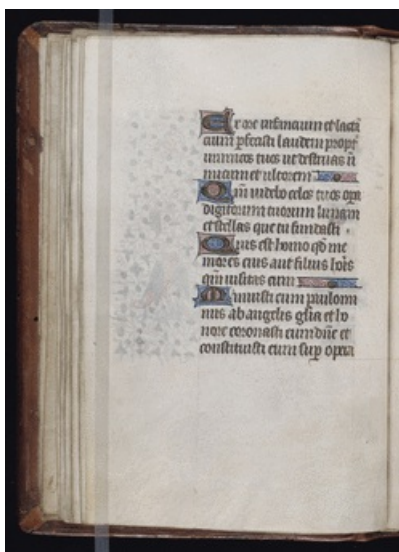 Ex ore infancium et lacta
cium pfecisti laudem propt
inimicos tuos ut destruas in
imicum et ultorem
Qm videbo celos tuos opa
digitorum tuorum lunam
et stellas que tu fundasti
Quis est homo qd me
mores eius aut filius hois
qm visitas eum
Minuisti eum paulomi
nus ab angelis glia et ho
nore coronasti eum dne et
constituisti eum sup opera